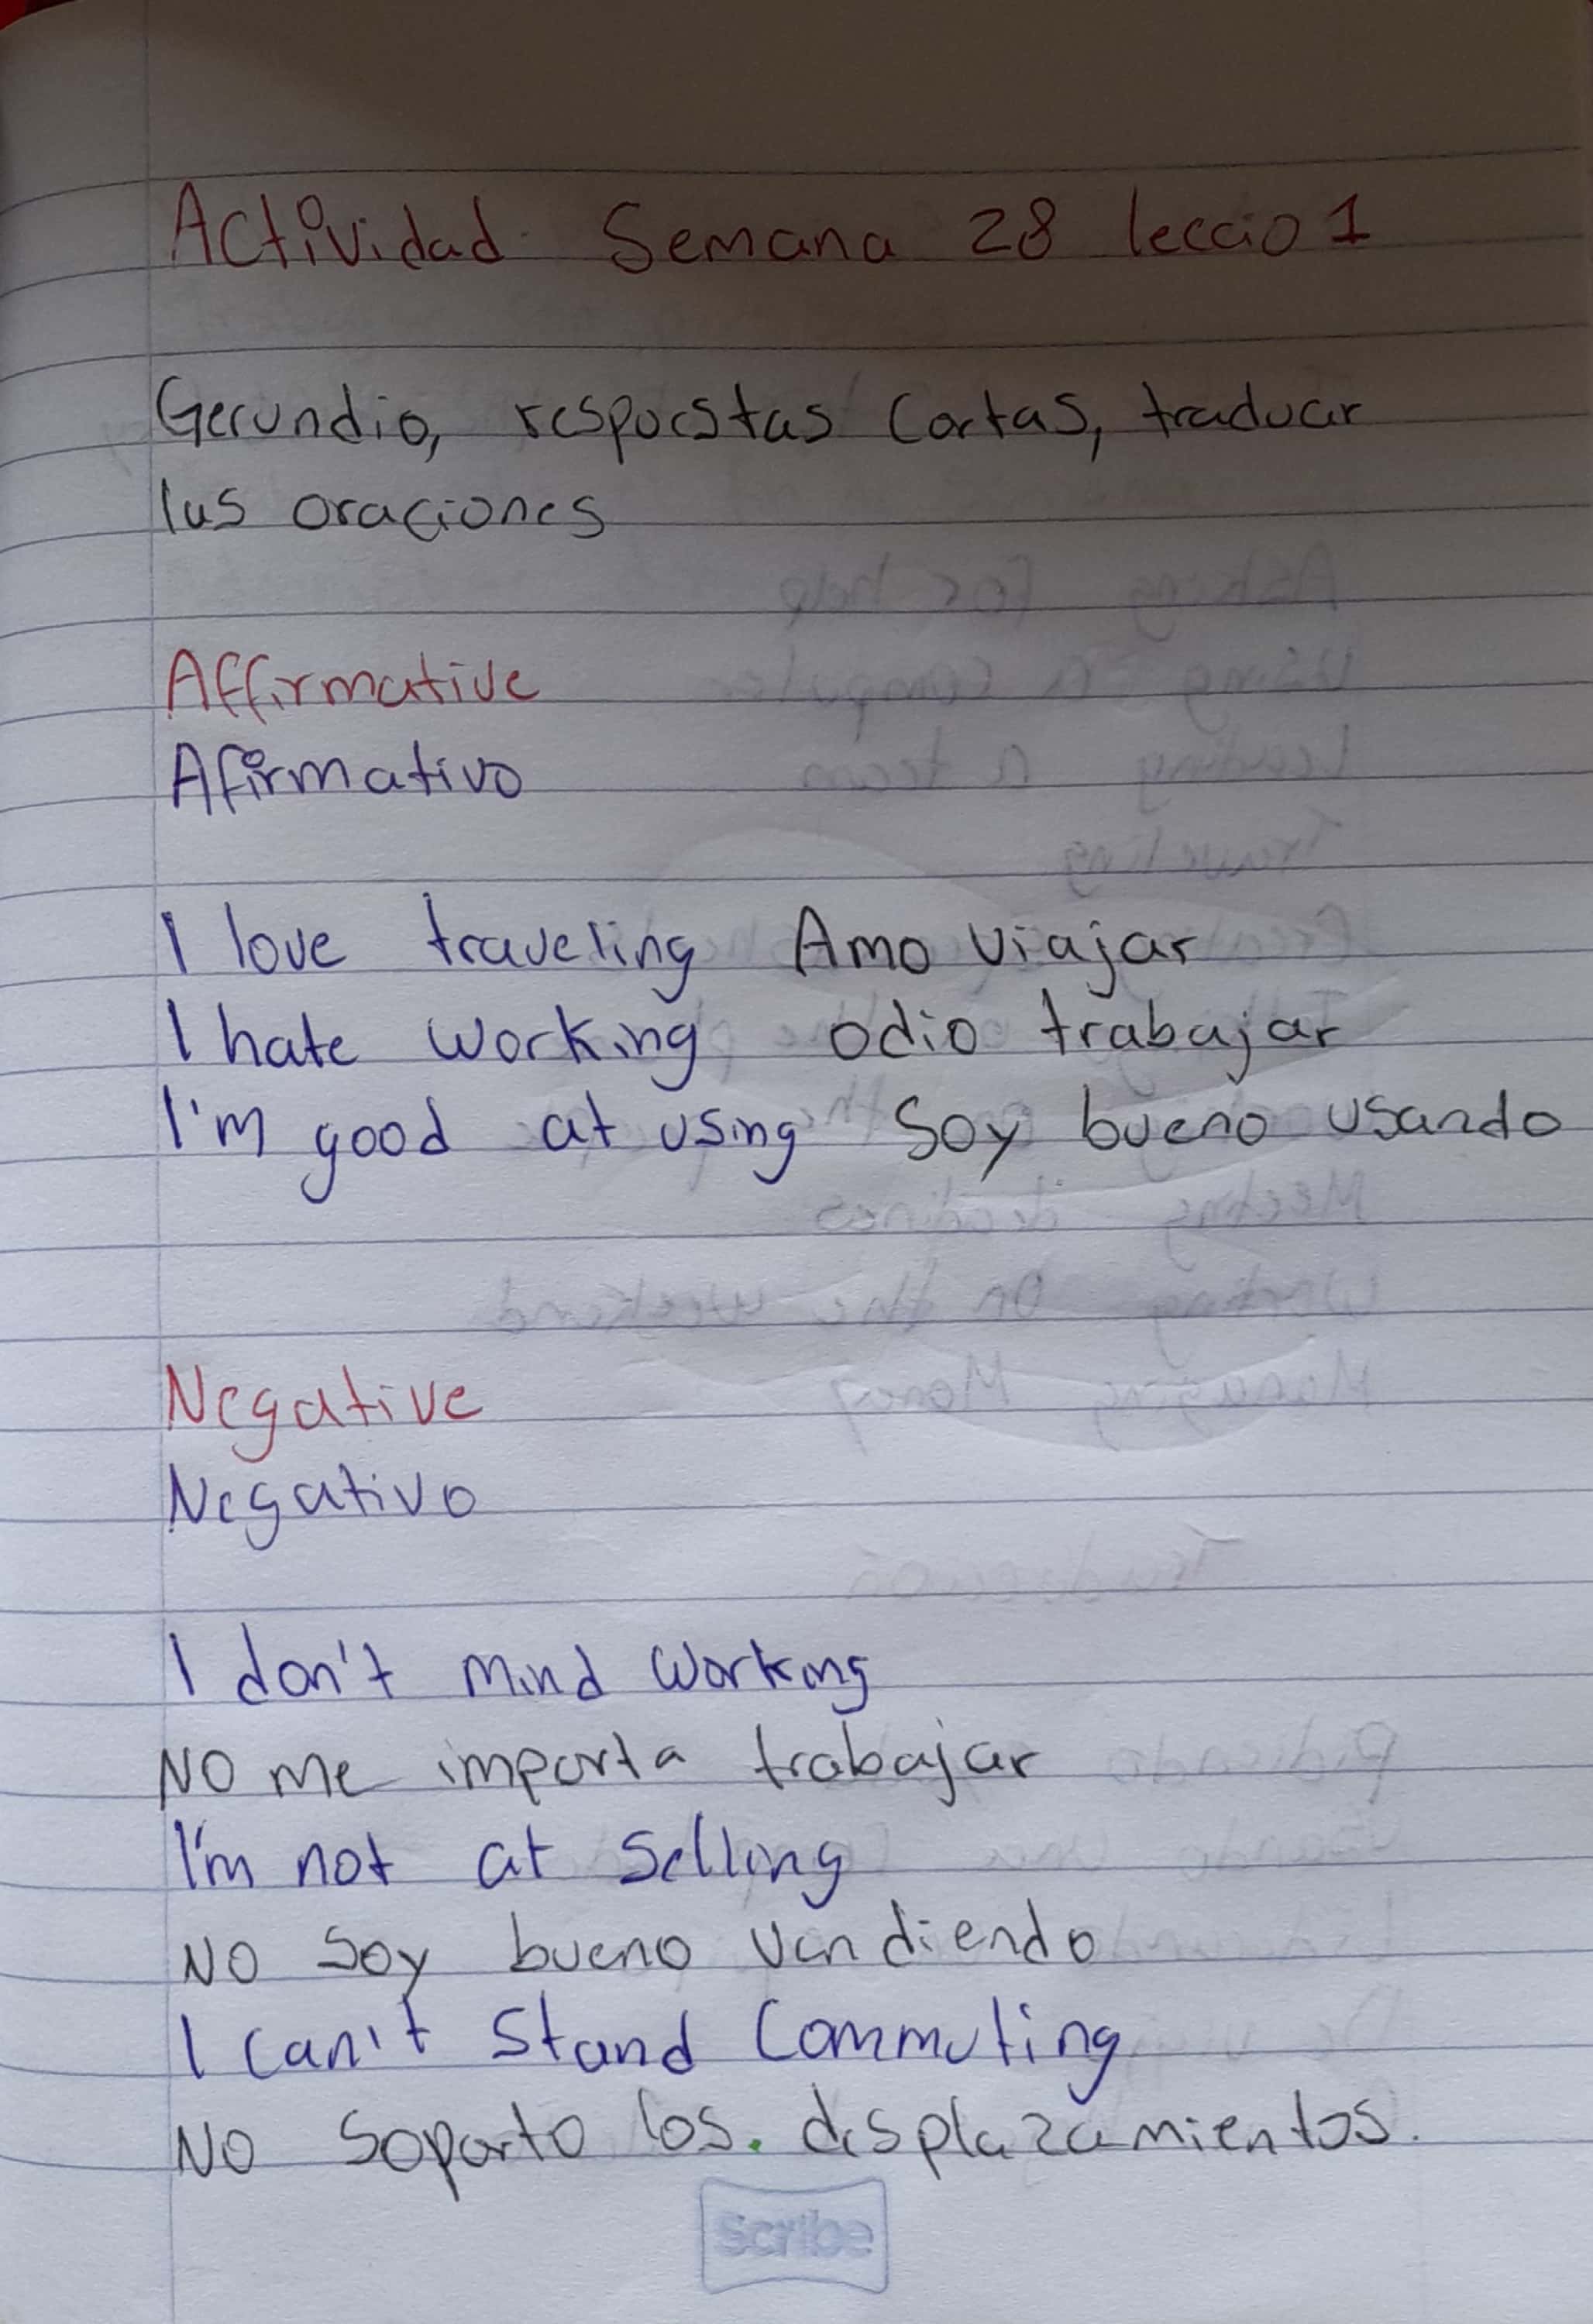 Actividad Semana 28 leccio 1
Gerundio, respuestas Cortas, traducir
las oraciones
Affirmative
Afirmativo
I love traveling Amo viajar
I hate working odio trabajar
I'm good at using Soy bueno usando
Negative
Negativo
I don't mind working
NO me importa trabajar
I'm not at selling
NO soy bueno vendiendo
I can't stand Commuting
NO soporto los. desplazamientos.
Scribe